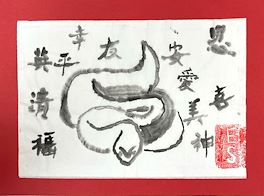 恩
喜
安
愛
美
神
友
幸
平
英
清
福
ES